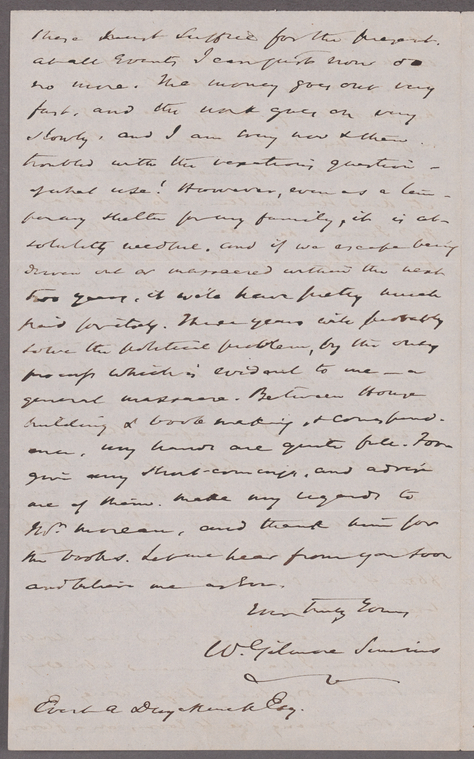 these must suffice for the present.
At all Events I can just now do
no more. The money goes out very
fast, and the work goes on very
slowly, and I am every now & then
troubled with the vexatious question —
of what use! However, even as a tem-
porary shelter for my family, it is ab-
solutely needful, and if we escape being
driven out or massacred within the next
two years, it will have pretty much
paid for itself. Three years will probably
solve the political problem, by the only
process which is evident to me — a
general massacre. Between House
building & book making, & correspond-
ence, my hands are quite full. For
give my short-comings, and advise
me of them. Make my regards to
Mr. and thank him for
the books. Let me hear from you soon
and believe me as Ever
Ever truly Yours
W. Gilmore Simms
Evert A Duyckinck Esq.